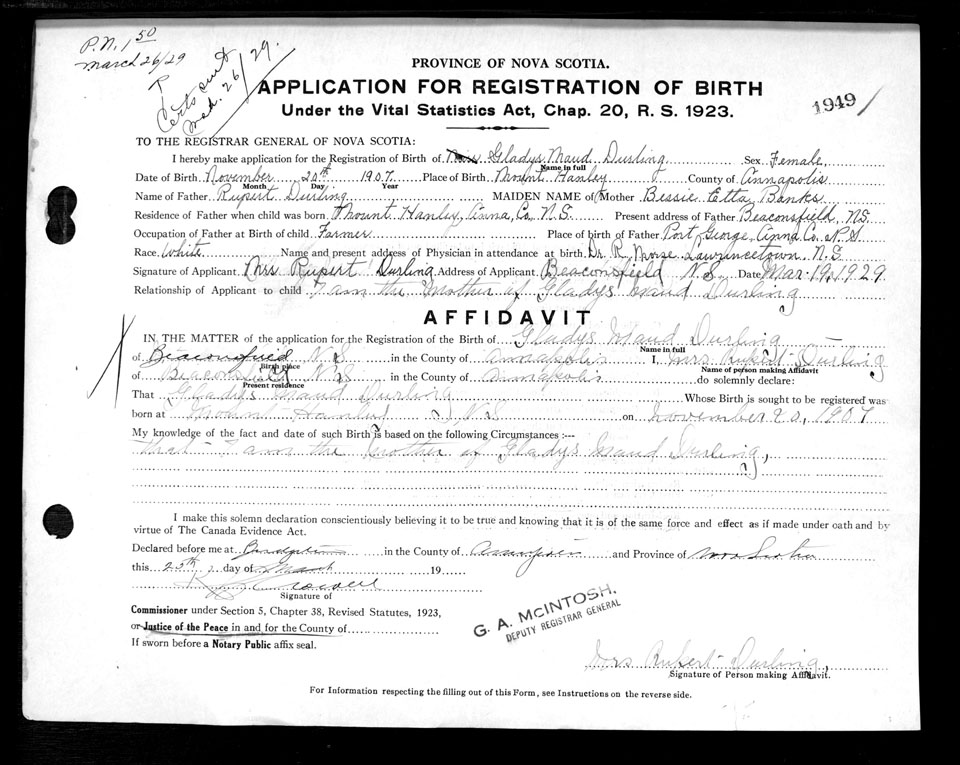 P.N. 1 50
March 26/29
Certs sent
Mch. 26/29.
PROVINCE OF NOVA SCOTIA.
APPLICATION FOR REGISTRATION OF BIRTH
Under the Vital Statistics Act, Chap. 20, R. S. 1923.
1949
TO THE REGISTRAR GENERAL OF NOVA SCOTIA:
I hereby make application for the Registration of Birth of Miss Gladys Maud Durling Sex Female
Name in full
Date of Birth November 20th 1907 Place of Birth Mount Hanley County of Annapolis
Month Day Year
Name of Father Rupert Durling MAIDEN NAME of Mother Bessie Etta Banks
Residence of Father when child was born Mount Hanley, Anna, Co. N. S. Present address of Father Beaconsfield, N.S.
Occupation of Father at Birth of child Farmer Place of birth of Father Port George Anna Co. N. S
Race White Name and present address of Physician in attendance at birth Dr. R. Morse Lawrencetown N. S
Signature of Applicant Mrs Rupert Durling Address of Applicant Beaconsfield N.S. Date Mar. 19, 1929
Relationship of Applicant to child I am the Mother of Gladys Maud Durling
AFFIDAVIT
IN THE MATTER of the application for the Registration of the Birth of Gladys Maud Durling
Name in full
of Beaconsfield N. S in the County of Annapolis I, Mrs Rupert Durling
Birth place Name of person making Affidavit
of Beaconsfield N. S in the County of Annapolis do solemnly declare:
Present residence
That Gladys Maud Durling Whose Birth is sought to be registered was
born at Mount Hanley, N.S on November 20, 1907
My knowledge of the fact and date of such Birth is based on the following Circumstances :—
That I am the Mother of Gladys Maud Durling,
I make this solemn declaration conscientiously believing it to be true and knowing that it is of the same force and effect as if made under oath and by
virtue of The Canada Evidence Act.
Declared before me at in the County of Annapolis and Province of Nova Scotia
this 25th day of March 19
Signature of
Commissioner under Section 5, Chapter 38, Revised Statutes, 1923,
or Justice of the Peace in and for the County of
If sworn before a Notary Public affix seal.
G. A. McINTOSH,
DEPUTY REGISTRAR GENERAL
Mrs Rupert Durling,
Signature of Person making Affidavit.
For Information respecting the filling out of this Form, see Instructions on the reverse side.